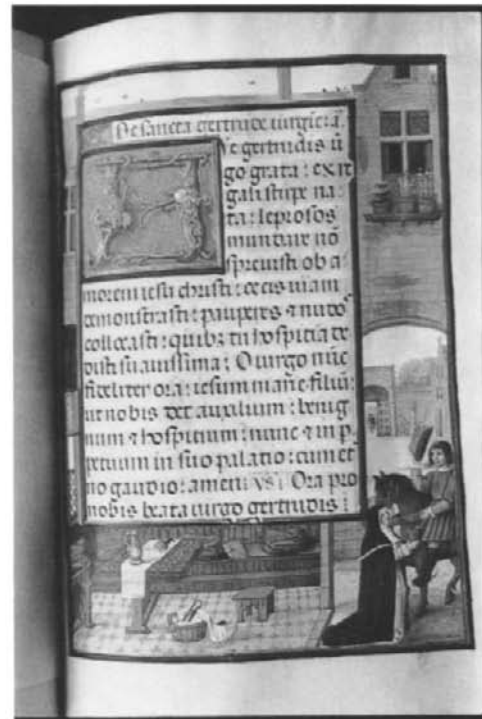 De sancta gertrude virgīe: ā.
Ave gertrudis v̄
go grata: ex re
gali stirpe na
ta: leprosos
mundare nō
sprevisti ob a
morem iesu christi: cecis viam
demonstrasti: pauperes ⁊ nudos
collocasti: quibꝫ tu hospitia de
disti suavissima: O virgo nūc
fideliter ora: iesum marie filiū:
ut nobis det auxilium: benig
num ⁊ hospitium: nunc ⁊ in p̄
petuum in suo palatio: cum et
no gaudio: amen: vs: Ora pro
nobis beata virgo gertrudis: